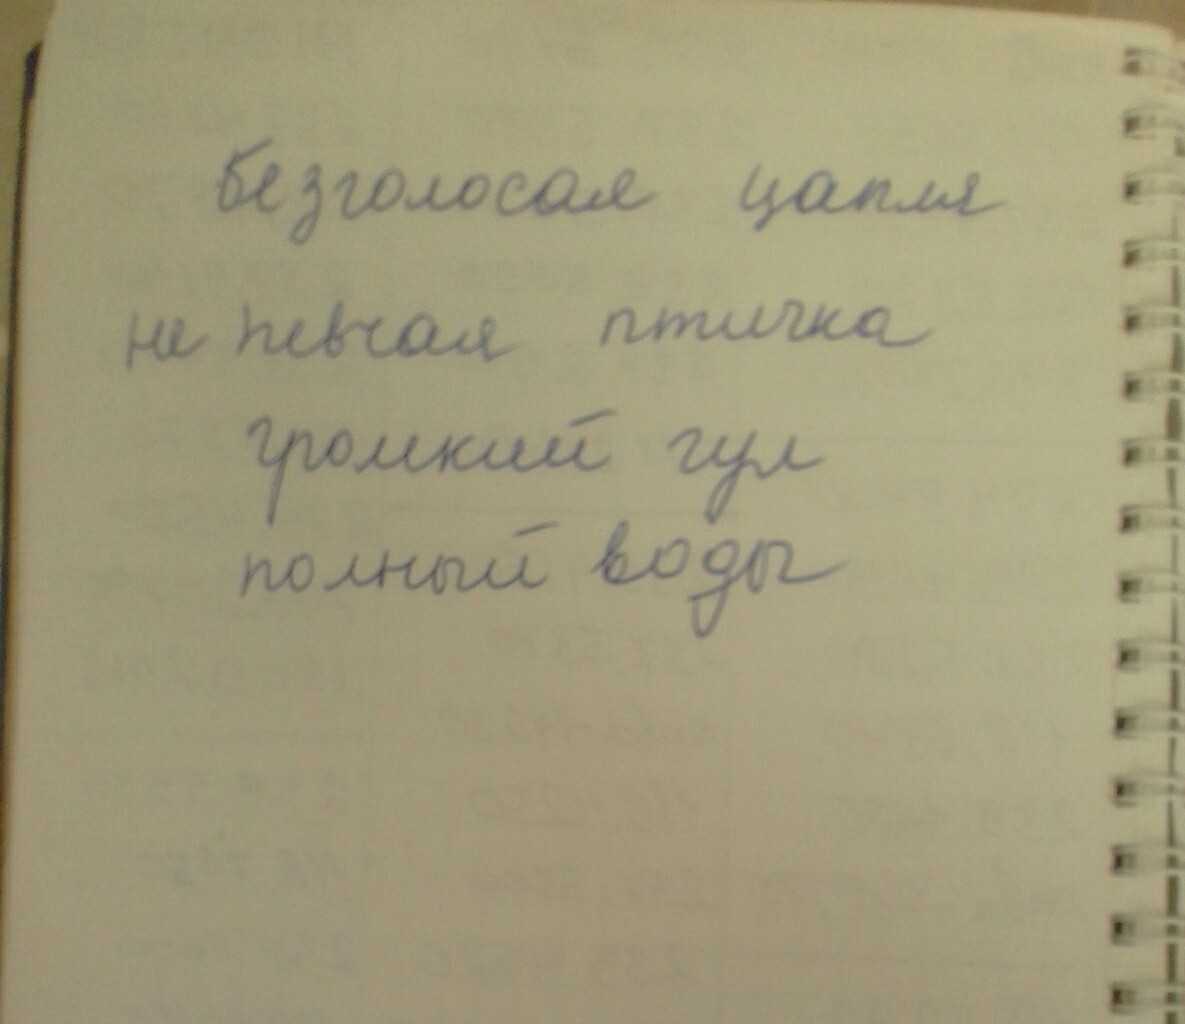 безголосая цапля
не певчая птичка
громкий гул
полный воды